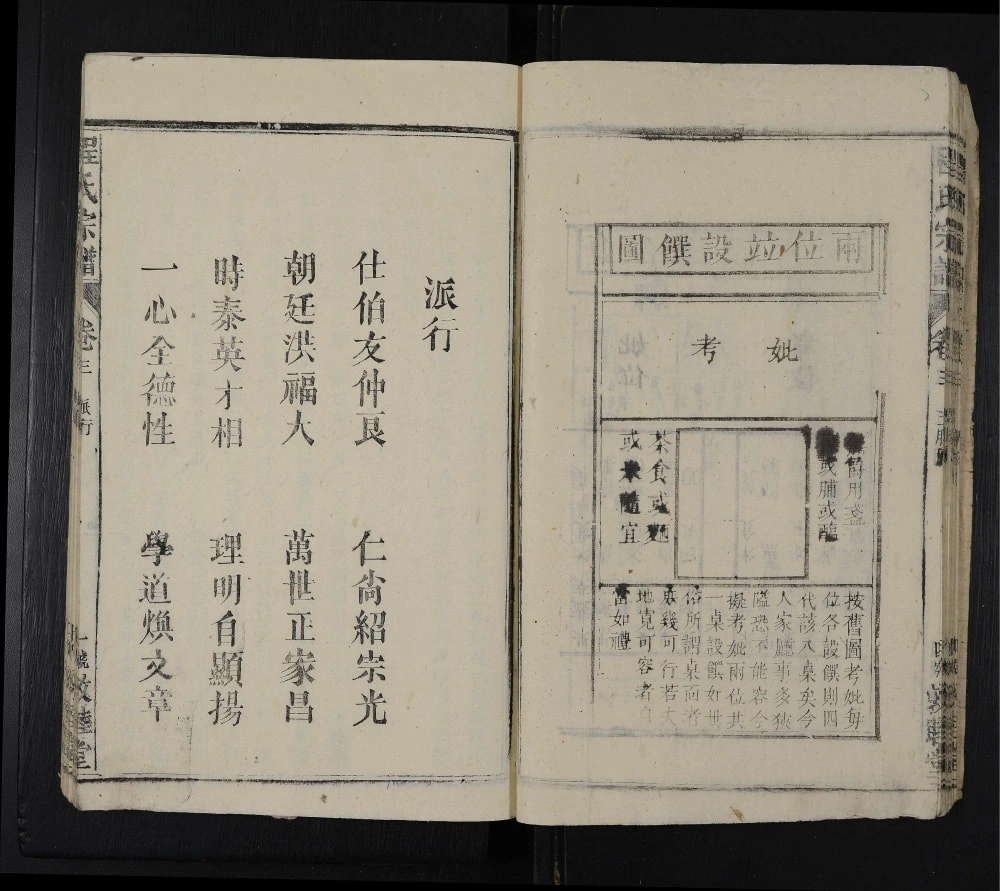 兩位竝設饌圖
考 妣
爵用盞
或脯或醢
茶食或麪
或米隨宜
按舊圖考妣每
位各設饌則四
代該八桌矣今
人家廳事多狹
隘恐不能容全
擬考妣兩位共
一桌設饌如世
俗所謂桌面者
庶幾可行若大
地寬可容者自
當如禮
程氏宗譜 卷三
派行
仕伯友仲良 仁尙紹宗光
朝廷洪福大 萬世正家昌
時泰英才相 理明自顯揚
一心全德性 學道煥文章
程氏宗譜 卷三 派行 敦睦堂